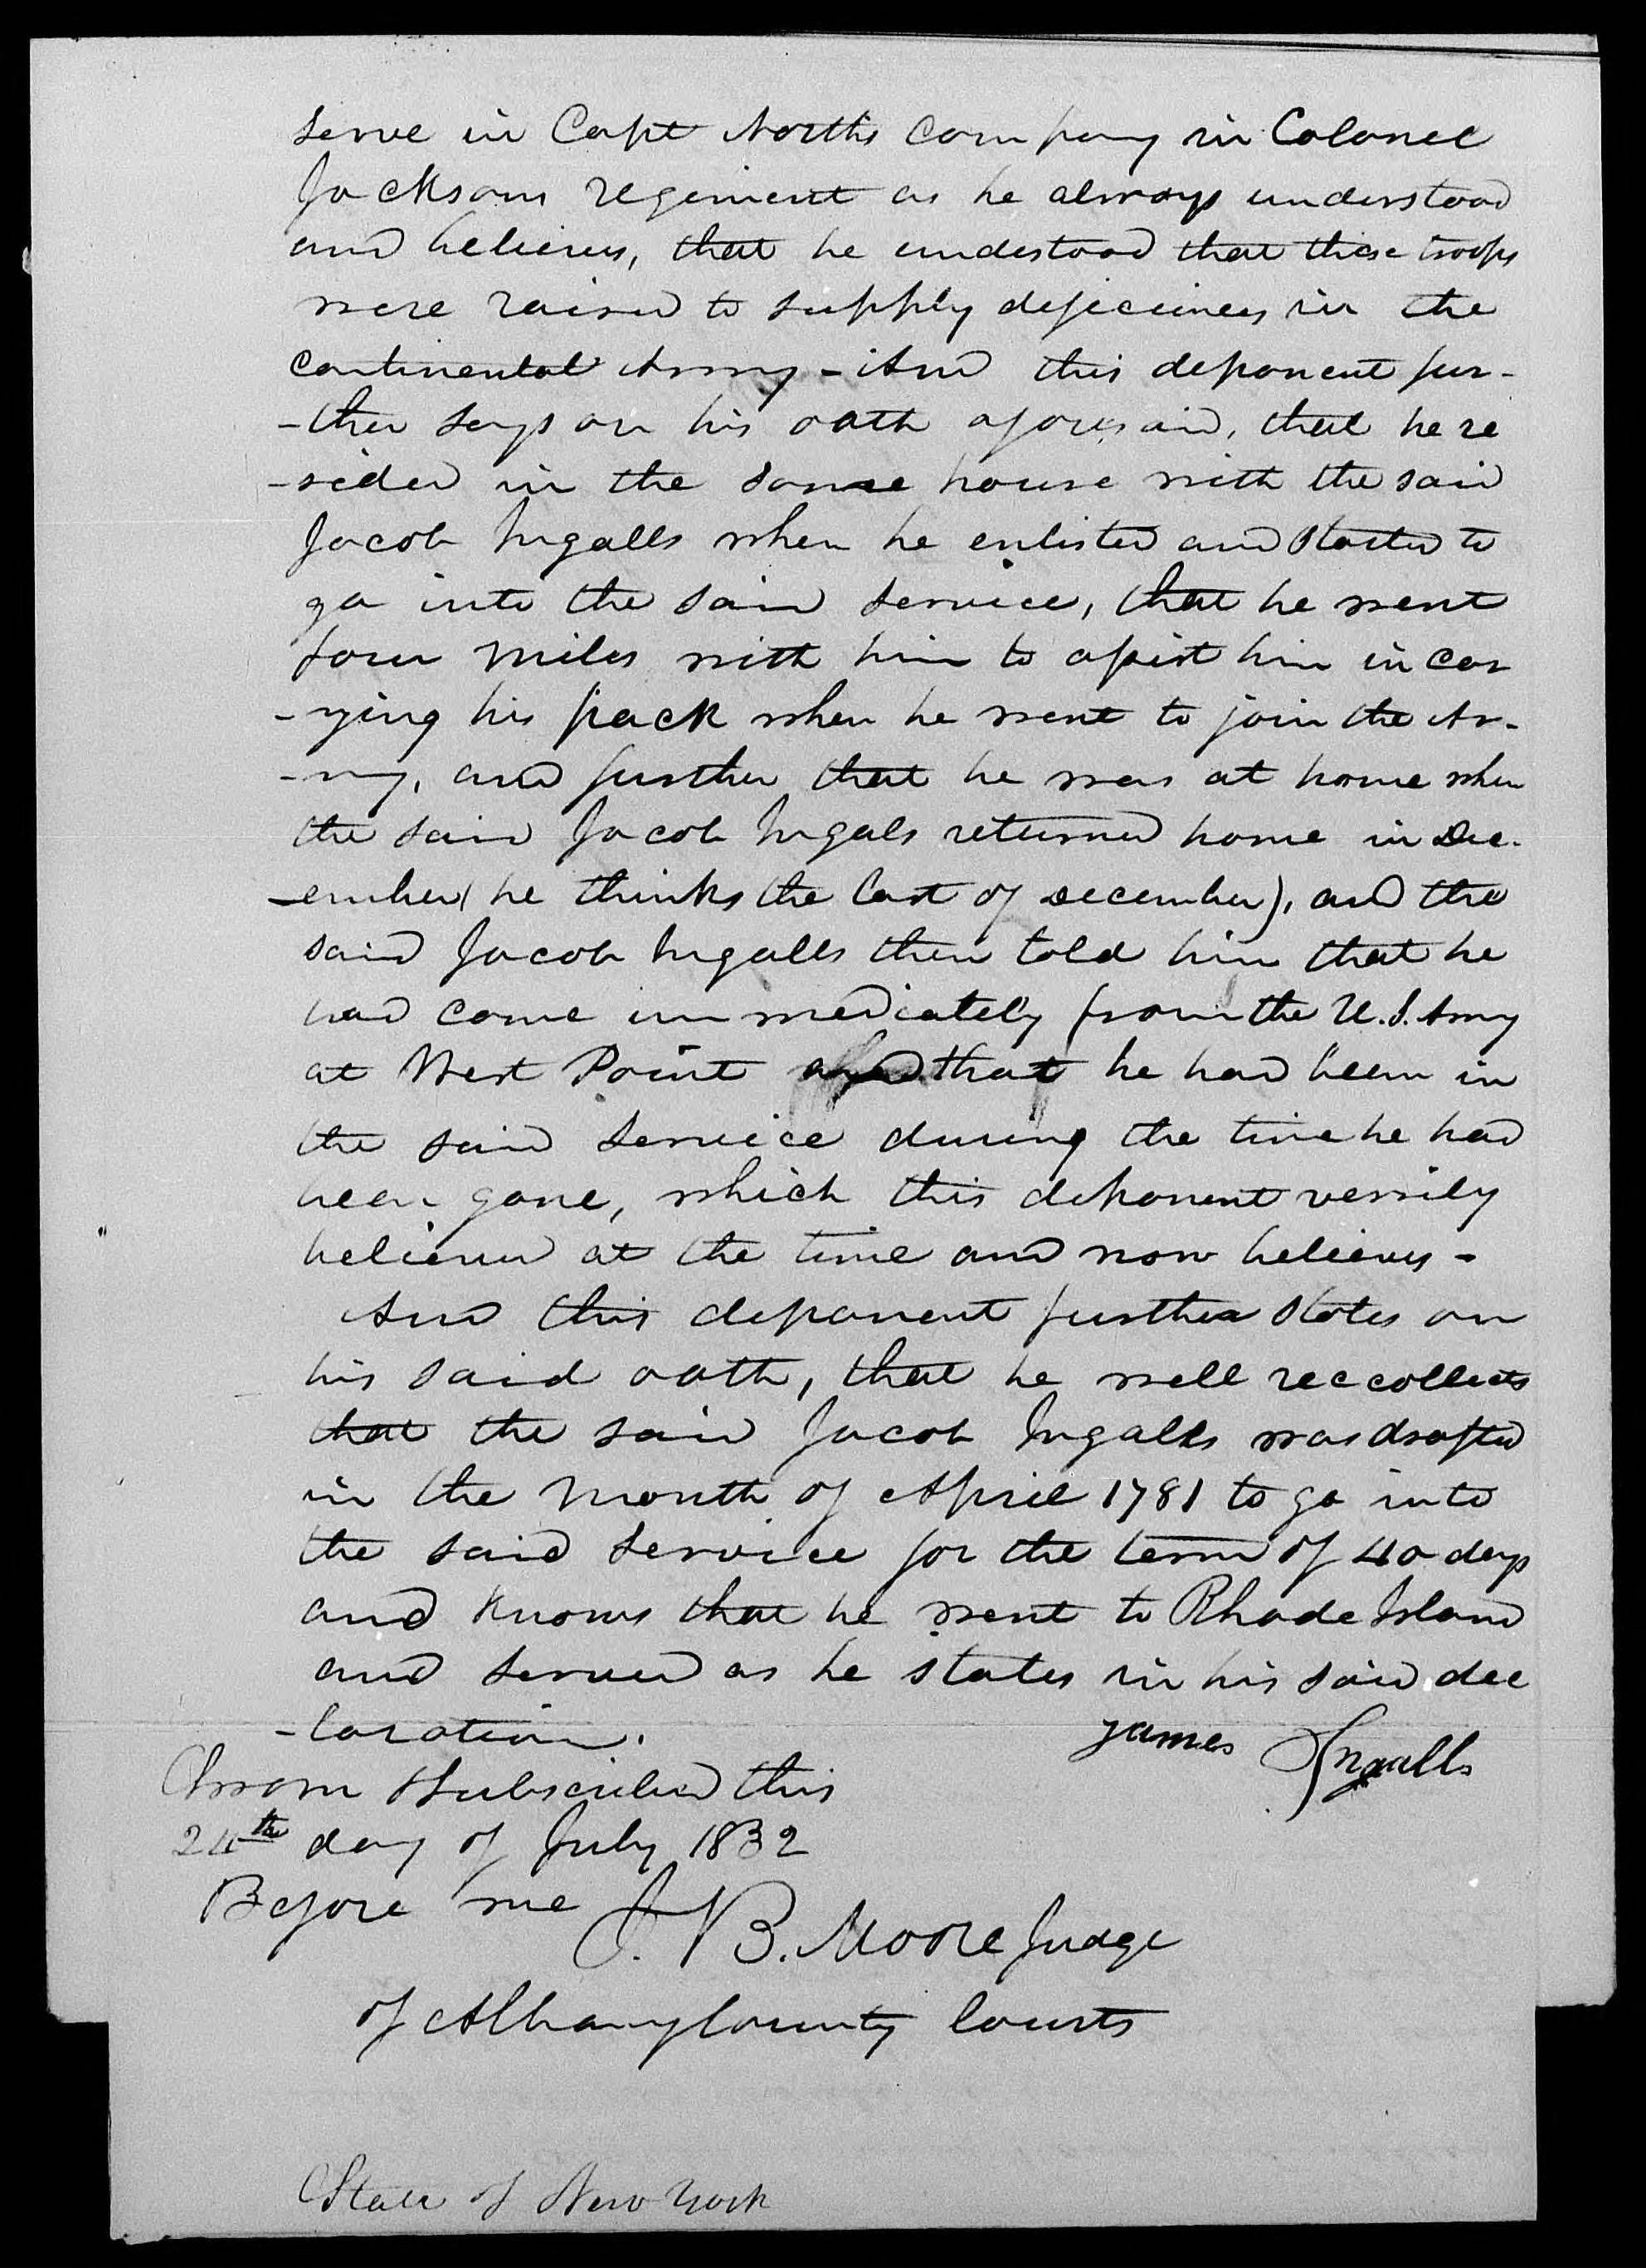 serve in Capt Norths company in Colonel
Jacksons regement as he always understood
and believes, that he undestood that these troops
were raised to supply deficiences in the
continental Army - And this deponent fur-
-ther says on his oath aforesaid, that he re
-sided in the same house with the said
Jacob Ingalls when he enlisted and started to
go into the said service, that he went
four miles with him to assist him in car
-rying his pack when he went to join the Ar-
-my, and further that he was at home when
the said Jacob Ingals returned home in Dec-
-ember (he thinks the last of December), and the
said Jacob Ingalls then told him that he
had come immediately from the U.S. Army
at West Point and that he had been in
the said service during the time he had
been gone, which this deponent verrily
believed at the time and now believes -
And this deponent further states on
his said oath, that he well reccollects
that the said Jacob Ingalls was drafted
in the month of April 1781 to go into
the said service for the term of 40 days
and knows that he went to Rhode Island
and served as he states in his said dec
-laration.
James Ingalls
Sworn & Subscribed this
24th day of July 1832
Before me
J. B. Moore Judge
of Albany County Courts
State of New York